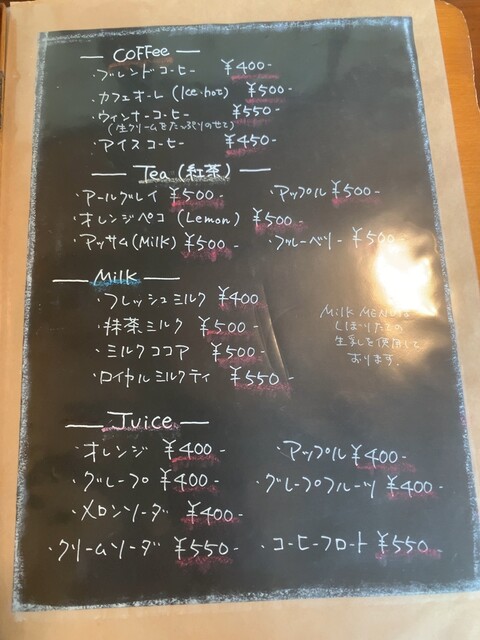 — COFFee —
・ブレンドコーヒー ¥400-
・カフェオーレ (Ice・hot) ¥500-
・ウィンナーコーヒー ¥550-
(生クリームをたっぷりのせて)
・アイスコーヒー ¥450-
— Tea (紅茶) —
・アールグレイ ¥500-
・アップル ¥500-
・オレンジペコ (Lemon) ¥500-
・アッサム (Milk) ¥500-
・ブルーベリー ¥500-
— Milk —
・フレッシュミルク ¥400
・抹茶ミルク ¥500-
・ミルクココア ¥500-
・ロイヤルミルクティ ¥550-
Milk MENUは
しぼりたての
生乳を使用して
おります。
— Juice —
・オレンジ ¥400-
・アップル ¥400-
・グレープ ¥400-
・グレープフルーツ ¥400-
・メロンソーダ ¥400-
・クリームソーダ ¥550-
・コーヒーフロート ¥550-